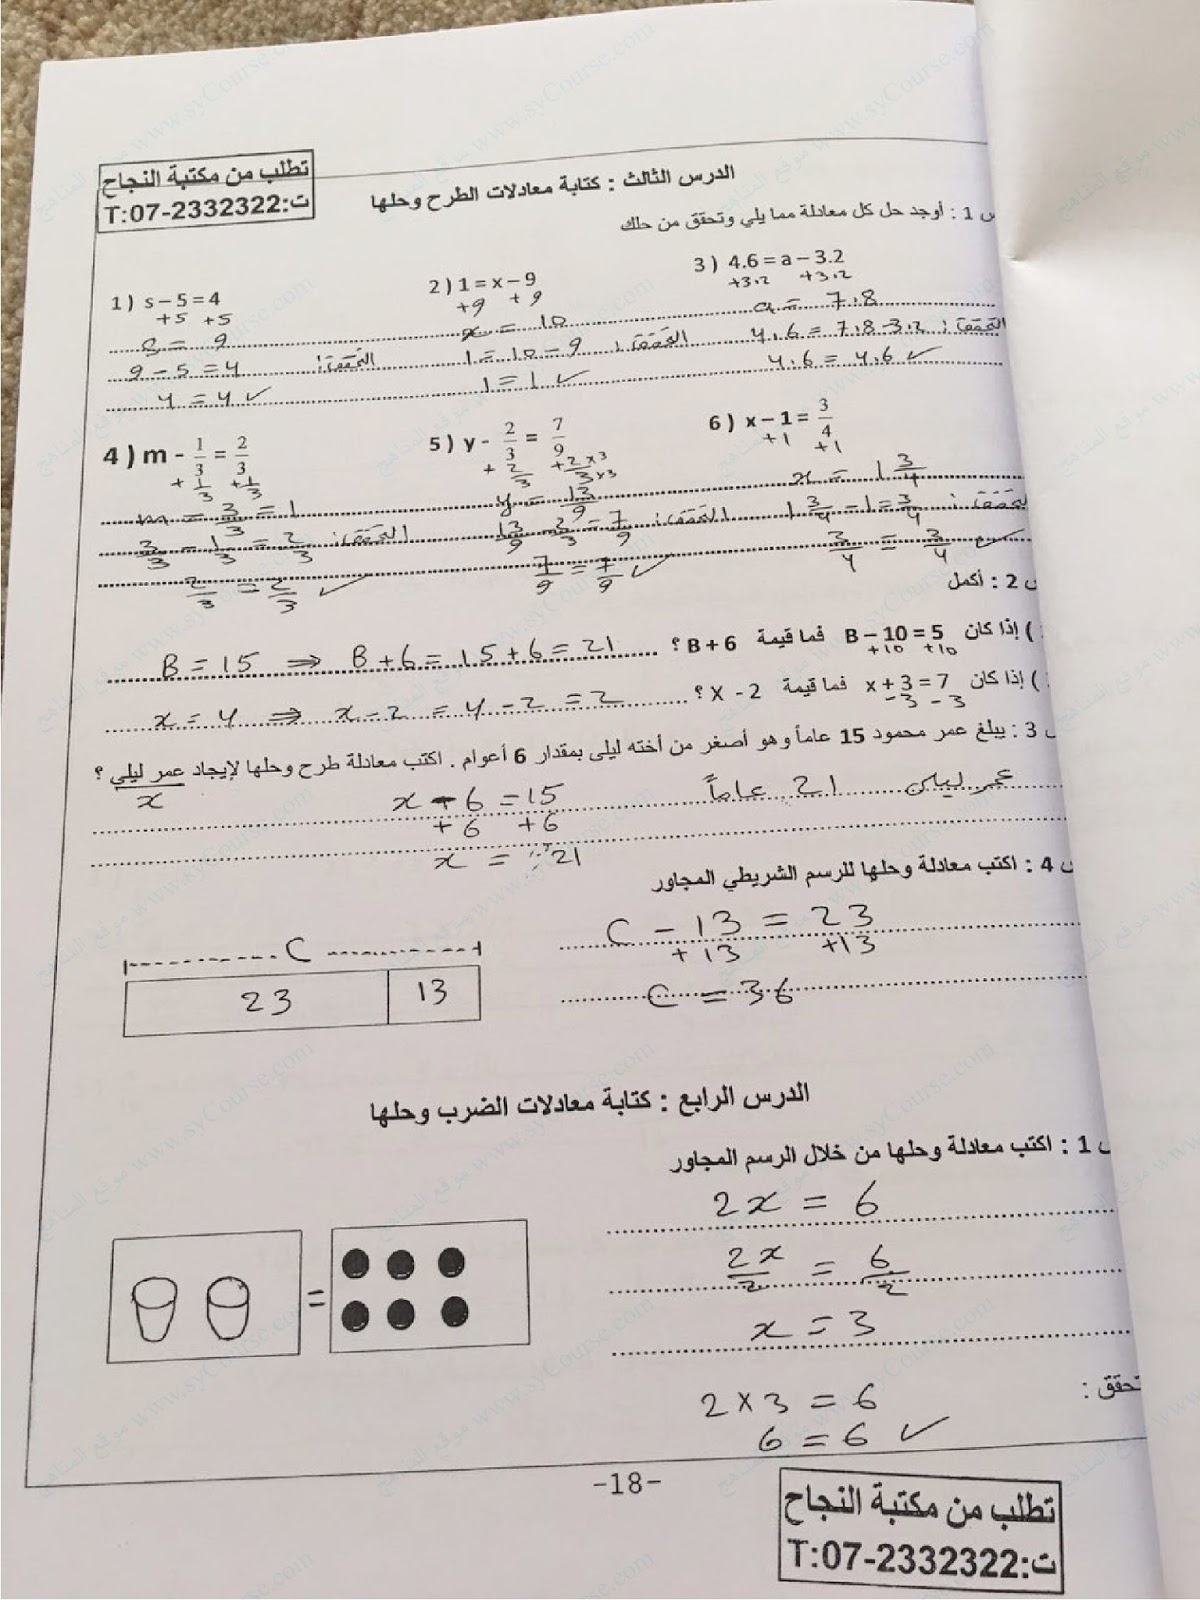 تطلب من مكتبة النجاح
ت:T:07-2332322
الدرس الثالث : كتابة معادلات الطرح وحلها
س 1 : أوجد حل كل معادلة مما يلي وتحقق من حلك
1 ) s – 5 = 4
+5 +5
s = 9
التحقق:
9 – 5 = 4
4 = 4 ✓
2 ) 1 = x – 9
+9 +9
x = 10
التحقق:
1 = 10 – 9
1 = 1 ✓
3 ) 4.6 = a – 3.2
+3.2 +3.2
a = 7.8
التحقق:
4.6 = 7.8 – 3.2
4.6 = 4.6 ✓
4 ) m - 1/3 = 2/3
+ 1/3 + 1/3
m = 3/3 = 1
التحقق:
3/3 – 1/3 = 2/3
2/3 = 2/3 ✓
5 ) y - 2/3 = 7/9
+ 2/3 + 2×3/3×3
y = 13/9
التحقق:
13/9 – 2/3 = 7/9
7/9 = 7/9 ✓
6 ) x – 1 = 3/4
+1 +1
x = 1 3/4
التحقق:
1 3/4 – 1 = 3/4
3/4 = 3/4 ✓
س 2 : أكمل
) إذا كان B – 10 = 5 فما قيمة B + 6 ؟
+10 +10
B = 15 ⇒ B + 6 = 15 + 6 = 21
) إذا كان x + 3 = 7 فما قيمة X - 2 ؟
– 3 – 3
x = 4 ⇒ x – 2 = 4 – 2 = 2
س 3 : يبلغ عمر محمود 15 عاماً وهو أصغر من أخته ليلى بمقدار 6 أعوام . اكتب معادلة طرح وحلها لإيجاد عمر ليلى ؟
x
x – 6 = 15
+ 6 + 6
x = 21
عمر ليلى 21 عاماً
س 4 : اكتب معادلة وحلها للرسم الشريطي المجاور
C – 13 = 23
+ 13 +13
C = 36
C
23 13
الدرس الرابع : كتابة معادلات الضرب وحلها
س 1 : اكتب معادلة وحلها من خلال الرسم المجاور
2x = 6
2x/2 = 6/2
x = 3
=
تحقق :
2 × 3 = 6
6 = 6 ✓
-18-
تطلب من مكتبة النجاح
ت:T:07-2332322
موقع المناهج www.syCourse.com